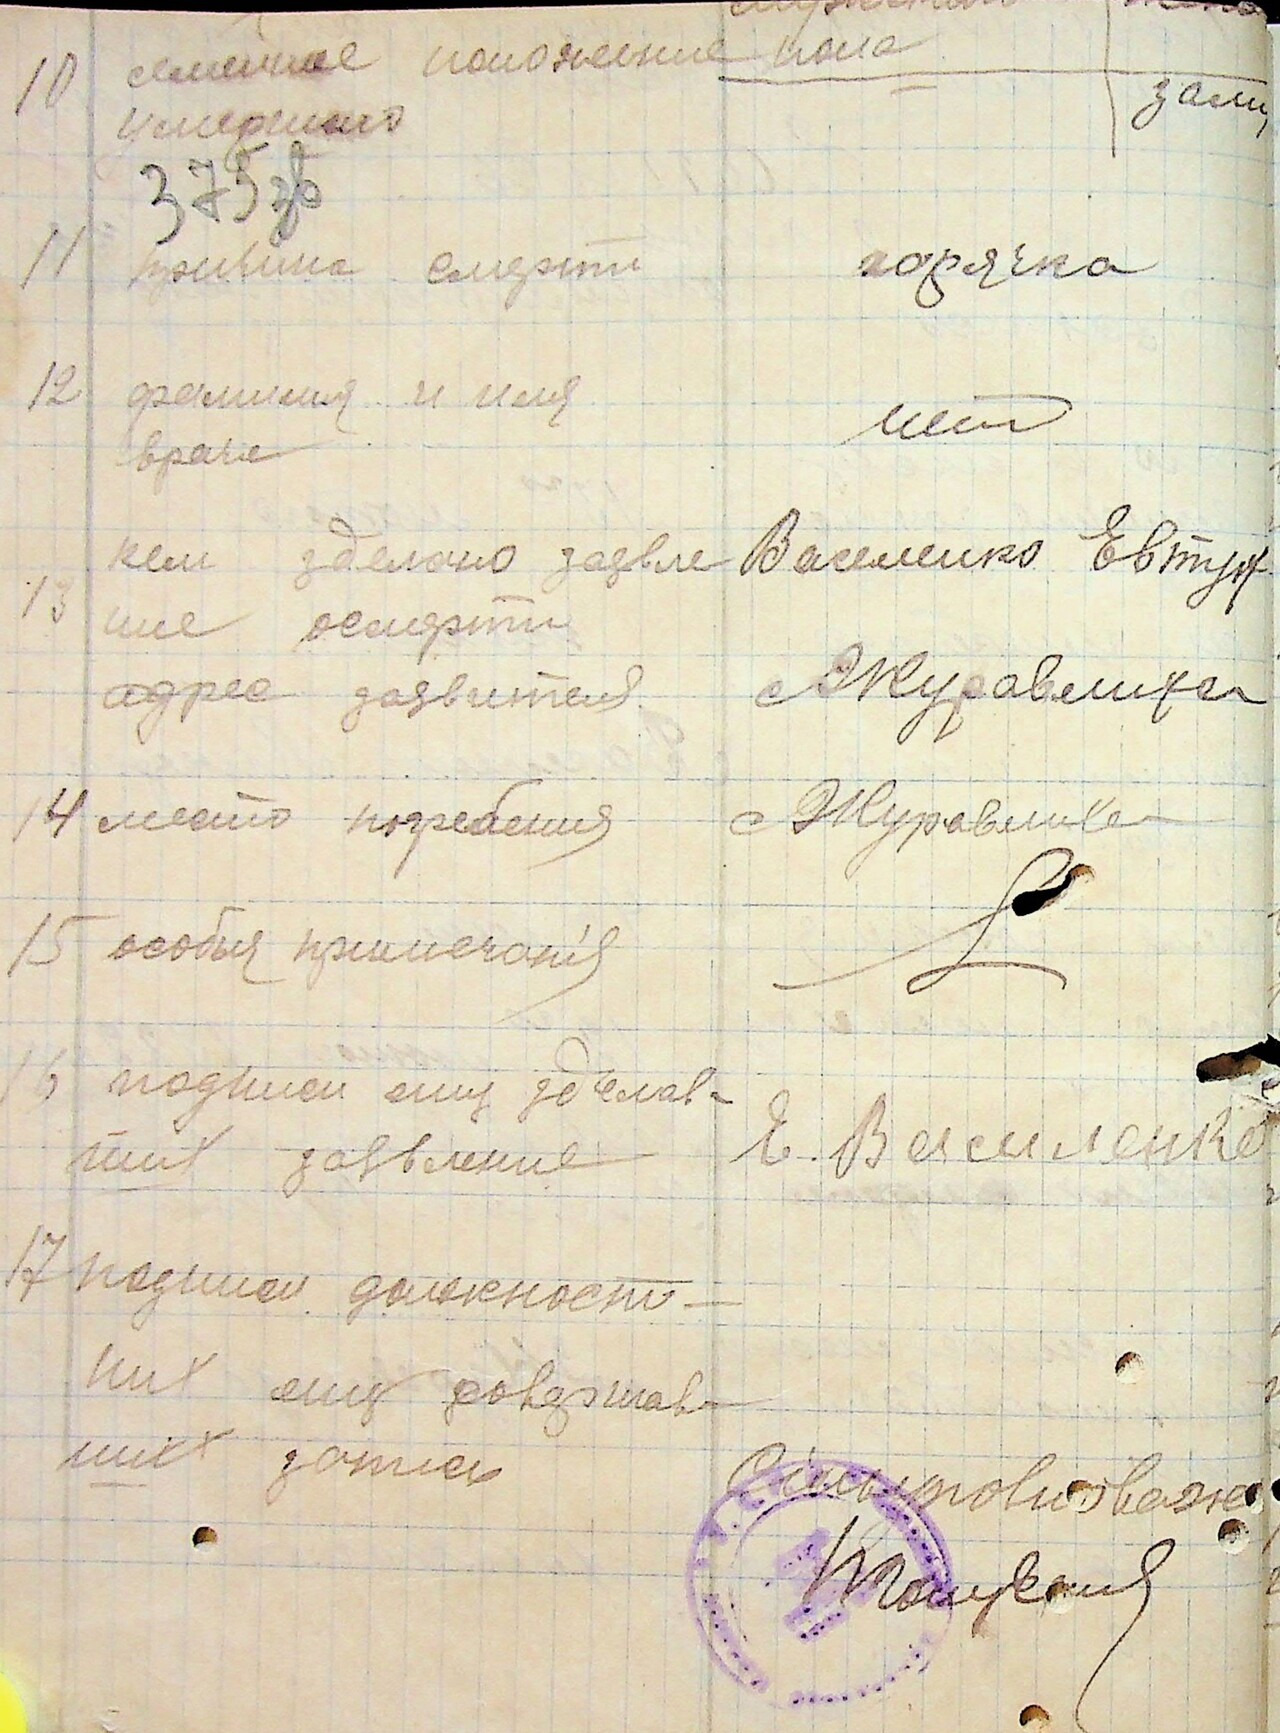 10 семейное положение пола
умершего
зам
375 зв
11 причина смерти горячка
12 фамилия и имя
врача нет
13 кем зделано заявле Василенко Евтух
ние осмерти
адрес заявителя с Журавлиха
14 место погребения с Журавлиха
15 особыя примечанія
16 подписи лиц зделав-
ших заявление Е. Василенко
17 подписи должност-
них лиц
ших запись